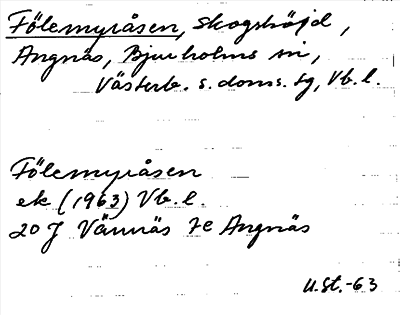 Fölemyråsen, skogshöjd,
Angnäs, Bjurholms sn,
Västerb. s. doms. tg, Vb. l.
Fölemyråsen
ek (1963) Vb. l.
20 J Vännäs 7e Angnäs
U.St.-63